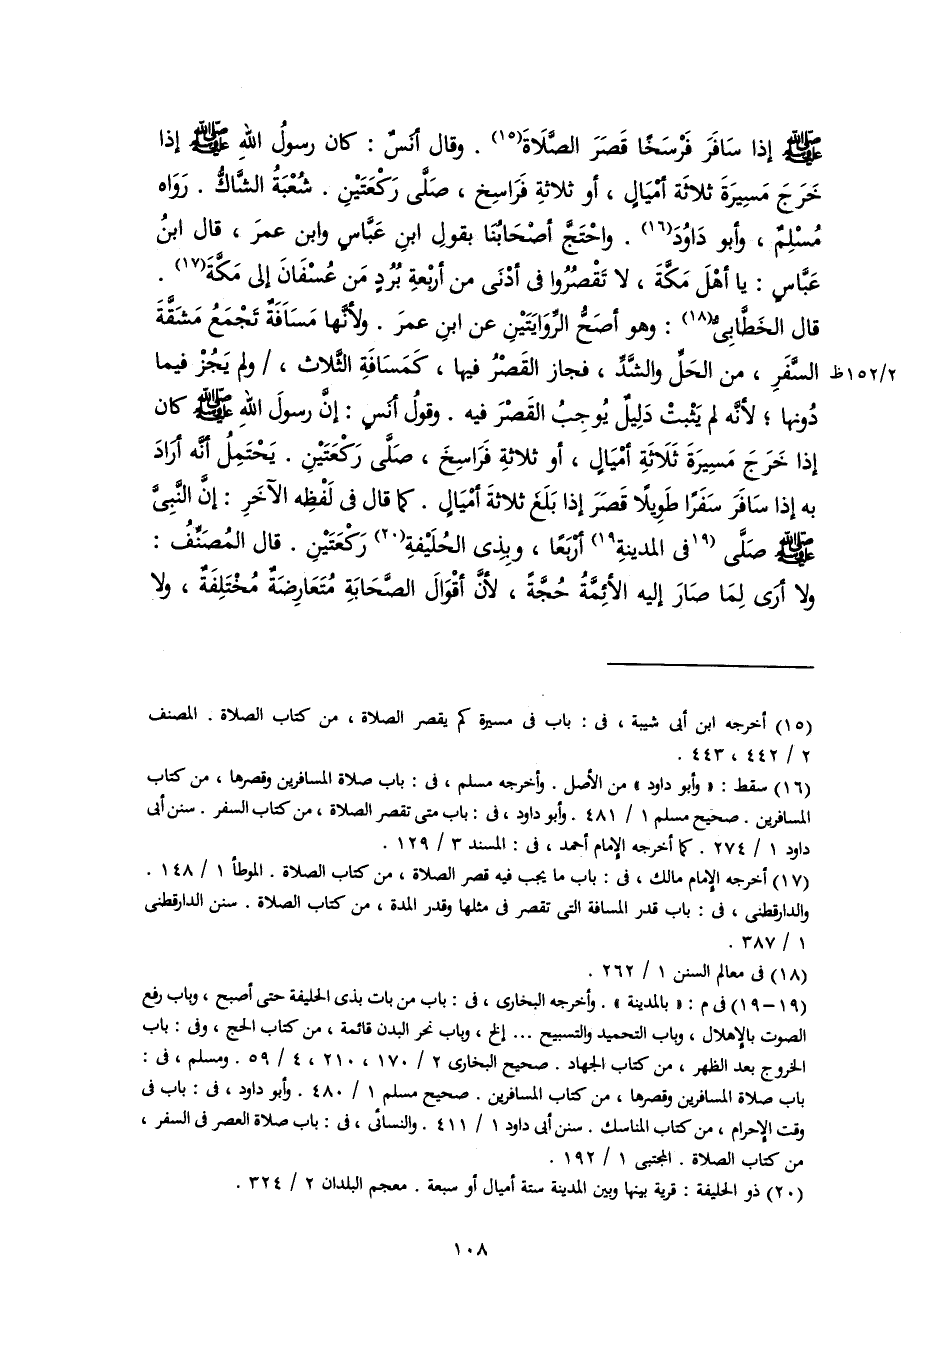 ﷺ إذا سَافَرَ فَرْسَخًا قَصَرَ الصَّلَاةَ(١٥) . وقال أنَسٌ : كان رسولُ اللهِ ﷺ إذا
خَرَجَ مَسِيرَةَ ثلاثَة أمْيَالٍ ، أو ثلاثةِ فَرَاسِخ ، صَلَّى رَكْعَتَيْنِ . شُعْبَةُ الشَّاكُّ . رَوَاه
مُسْلِمٌ ، وأبو دَاوُدَ(١٦) . واحْتَجَّ أصْحابُنَا بقولِ ابنِ عَبَّاسٍ وابن عمرَ ، قال ابنُ
عَبَّاسٍ : يا أهْلَ مَكَّةَ ، لا تَقْصُرُوا فى أدْنَى من أرْبَعةِ بُرُدٍ مَن عُسْفَانَ إلى مَكَّةَ(١٧) .
قال الخَطَّابِىُّ(١٨) : وهو أصَحُّ الرِّوَايَتَيْنِ عن ابنِ عمرَ . ولأنَّها مَسَافَةٌ تَجْمَعُ مَشَقَّةَ
السَّفَرِ ، من الحَلِّ والشَّدِّ ، فجاز القَصْرُ فيها ، كَمَسَافَةِ الثَّلاث ، / ولم يَجُزْ فيما
١٥٢/٢ظ
دُونها ؛ لأنَّه لم يَثْبتْ دَلِيلٌ يُوجِبُ القَصْرَ فيه . وقولُ أنَسٍ : إنَّ رسولَ اللهِ ﷺ كان
إذا خَرَجَ مَسِيرَةَ ثَلَاثَةِ أمْيَالٍ ، أو ثلاثةِ فَرَاسِخَ ، صَلَّى رَكْعَتَيْنِ . يَحْتَمِلُ أنَّه أرَادَ
به إذا سَافَرَ سَفَرًا طَوِيلًا قَصَرَ إذا بَلَغَ ثلاثةَ أمْيَالٍ . كما قال فى لَفْظِه الآخَرِ : إنَّ النَّبِىَّ
ﷺ صَلَّى (١٩فى المدينةِ١٩) أرْبَعًا ، وبِذِى الحُلَيْفةِ(٢٠) رَكْعَتَيْنِ . قال المُصَنِّفُ :
ولا أرَى لِمَا صَارَ إليه الأئِمَّةُ حُجَّةً ، لأنَّ أقْوَالَ الصَّحابَةِ مُتَعَارِضَةٌ مُخْتَلِفَةٌ ، ولا
(١٥) أخرجه ابن أبى شيبة ، فى : باب فى مسيرة كم يقصر الصلاة ، من كتاب الصلاة . المصنف
٢ / ٤٤٢ ، ٤٤٣ .
(١٦) سقط : « وأبو داود » من الأصل . وأخرجه مسلم ، فى : باب صلاة المسافرين وقصرها ، من كتاب
المسافرين . صحيح مسلم ١ / ٤٨١ . وأبو داود ، فى : باب متى تقصر الصلاة ، من كتاب السفر . سنن أبى
داود ١ / ٢٧٤ . كما أخرجه الإمام أحمد ، فى : المسند ٣ / ١٢٩ .
(١٧) أخرجه الإمام مالك ، فى : باب ما يجب فيه قصر الصلاة ، من كتاب الصلاة . الموطأ ١ / ١٤٨ .
والدارقطنى ، فى : باب قدر المسافة التى تقصر فى مثلها وقدر المدة ، من كتاب الصلاة . سنن الدارقطنى
١ / ٣٨٧ .
(١٨) فى معالم السنن ١ / ٢٦٢ .
(١٩-١٩) فى م : « بالمدينة » . وأخرجه البخارى ، فى : باب من بات بذى الحليفة حتى أصبح ، وباب رفع
الصوت بالإهلال ، وباب التحميد والتسبيح ... إلخ ، وباب نحر البدن قائمة ، من كتاب الحج ، وفى : باب
الخروج بعد الظهر ، من كتاب الجهاد . صحيح البخارى ٢ / ١٧٠ ، ٢١٠ ، ٤ / ٥٩ . ومسلم ، فى :
باب صلاة المسافرين وقصرها ، من كتاب المسافرين . صحيح مسلم ١ / ٤٨٠ . وأبو داود ، فى : باب فى
وقت الإحرام ، من كتاب المناسك . سنن أبى داود ١ / ٤١١ . والنسائى ، فى : باب صلاة العصر فى السفر ،
من كتاب الصلاة . المجتبى ١ / ١٩٢ .
(٢٠) ذو الحليفة : قرية بينها وبين المدينة ستة أميال أو سبعة . معجم البلدان ٢ / ٣٢٤ .
١٠٨